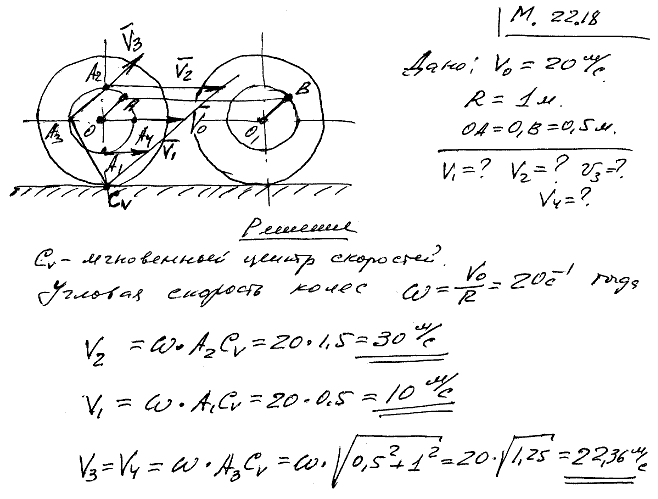 М. 22.18
Дано: V₀ = 20 м/с
R = 1 м.
OA = O₁B = 0,5 м.
V₁ = ? V₂ = ? V₃ = ?
V₄ = ?
V̄₃
A₂
V̄₂
A
B
A₃
O
A₄
V̄₀
O₁
A₁
V̄₁
Cᵥ
Решение
Cᵥ - мгновенный центр скоростей.
Угловая скорость колес ω = V₀/R = 20 с⁻¹ тогда
V₂ = ω · A₂Cᵥ = 20 · 1,5 = 30 м/с
V₁ = ω · A₁Cᵥ = 20 · 0.5 = 10 м/с
V₃ = V₄ = ω · A₃Cᵥ = ω · √(0,5² + 1²) = 20 · √1,25 = 22,36 м/с